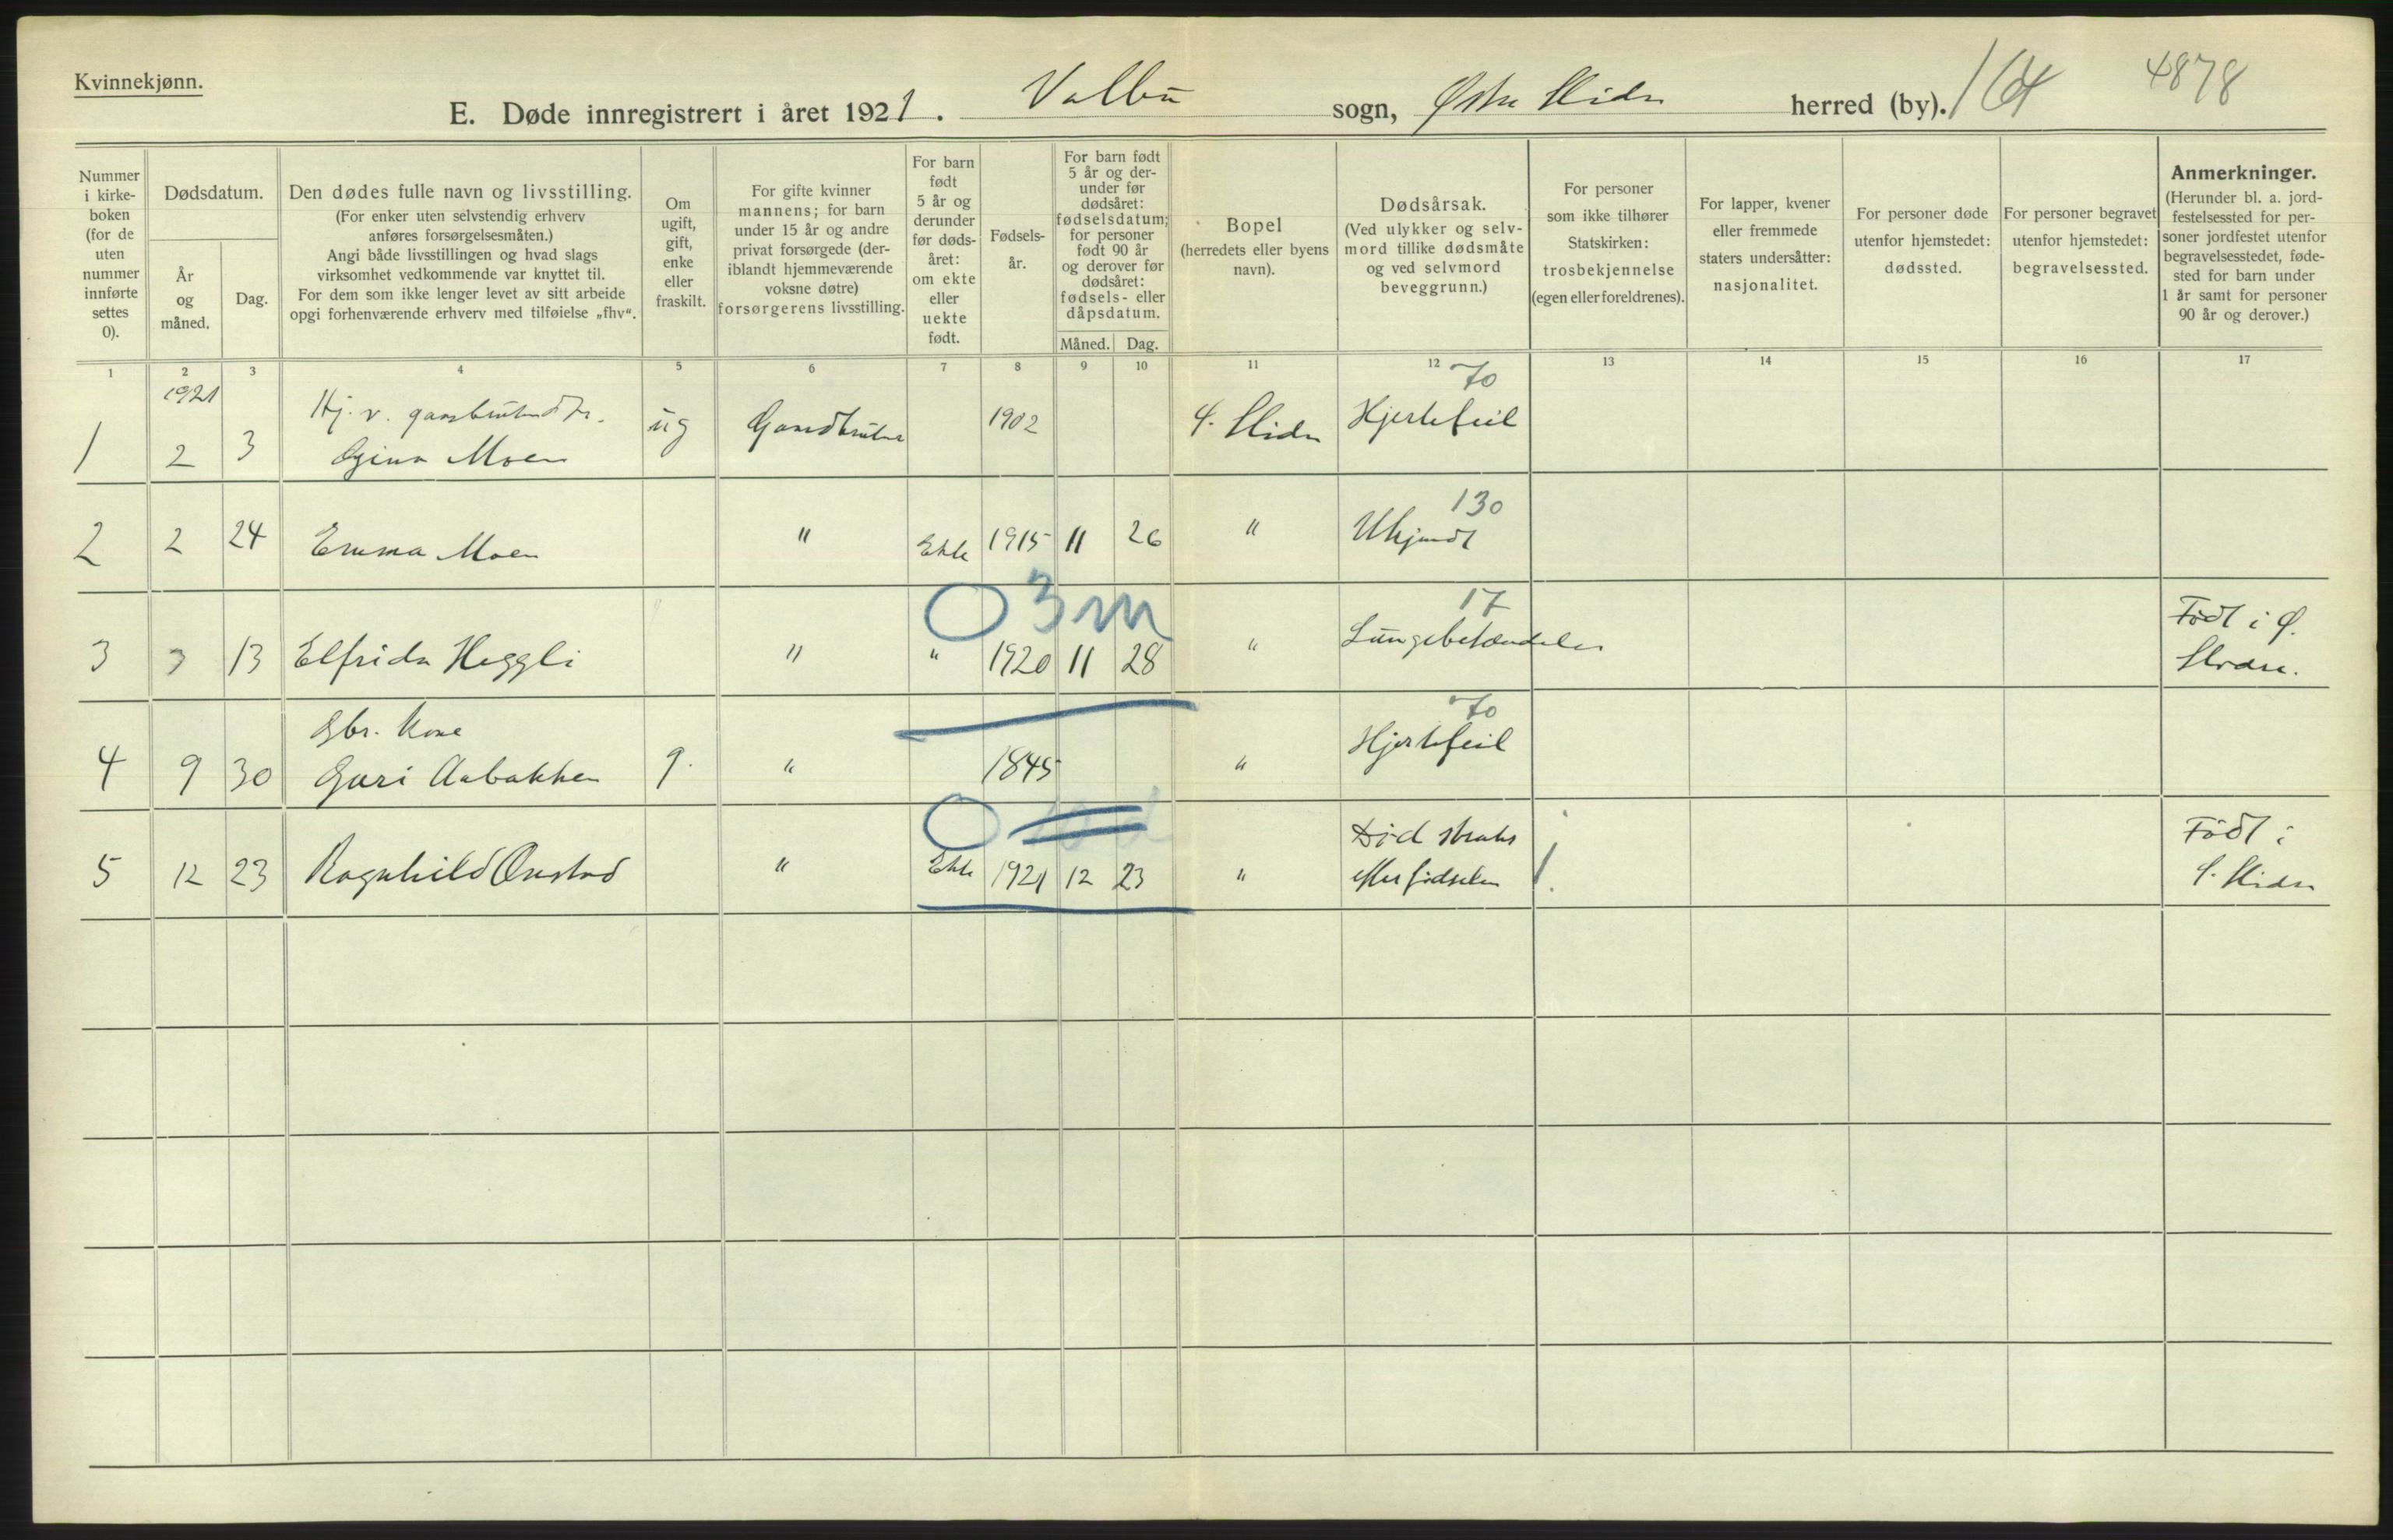 Kvinnekjønn.
E. Døde innregistrert i året 1921. Volbu sogn, Østre Slidre herred (by). 164 4878
Nummer i kirke-boken (for de uten nummer innførte settes 0).
Dødsdatum.
År og måned.
Dag.
Den dødes fulle navn og livsstilling.
(For enker uten selvstendig erhverv
anføres forsørgelsesmåten.)
Angi både livsstillingen og hvad slags
virksomhet vedkommende var knyttet til.
For dem som ikke lenger levet av sitt arbeide
opgi forhenværende erhverv med tilføielse „fhv“.
Om
ugift,
gift,
enke
eller
fraskilt.
For gifte kvinner
mannens; for barn
under 15 år og andre
privat forsørgede (der-
iblandt hjemmeværende
voksne døtre)
forsørgerens livsstilling.
For barn
født
5 år og
derunder
før døds-
året:
om ekte
eller
uekte
født.
Fødsels-
år.
For barn født
5 år og der-
under før
dødsåret:
fødselsdatum;
for personer
født 90 år
og derover før
dødsåret:
fødsels- eller
dåpsdatum.
Måned. Dag.
Bopel
(herredets eller byens
navn).
Dødsårsak.
(Ved ulykker og selv-
mord tillike dødsmåte
og ved selvmord
beveggrunn.)
For personer
som ikke tilhører
Statskirken:
trosbekjennelse
(egen eller foreldrenes).
For lapper, kvener
eller fremmede
staters undersåtter:
nasjonalitet.
For personer døde
utenfor hjemstedet:
dødssted.
For personer begravet
utenfor hjemstedet:
begravelsessted.
Anmerkninger.
(Herunder bl. a. jord-
festelsessted for per-
soner jordfestet utenfor
begravelsesstedet, føde-
sted for barn under
1 år samt for personer
90 år og derover.)
1 2 3 4 5 6 7 8 9 10 11 12 13 14 15 16 17
1921 70
Hj. v. gaardbrukerdtr.
1 2 3 Gina Moen ug Gaardbruker 1902 Ø. Slidre Hjertefeil
130
2 2 24 Emma Moen " Ekte 1915 11 26 " Ukjendt
O 3 m 17
3 3 13 Elfrida Heggli " " 1920 11 28 " Lungebetændelse Født i Ø.
Slidre.
70
Gbr. Kone
4 9 30 Guri Aabakken g. " 1845 " Hjertefeil
O
5 12 23 Ragnhild Onstad " Ekte 1921 12 23 " Død straks
efter fødselen Født i
Ø. Slidre